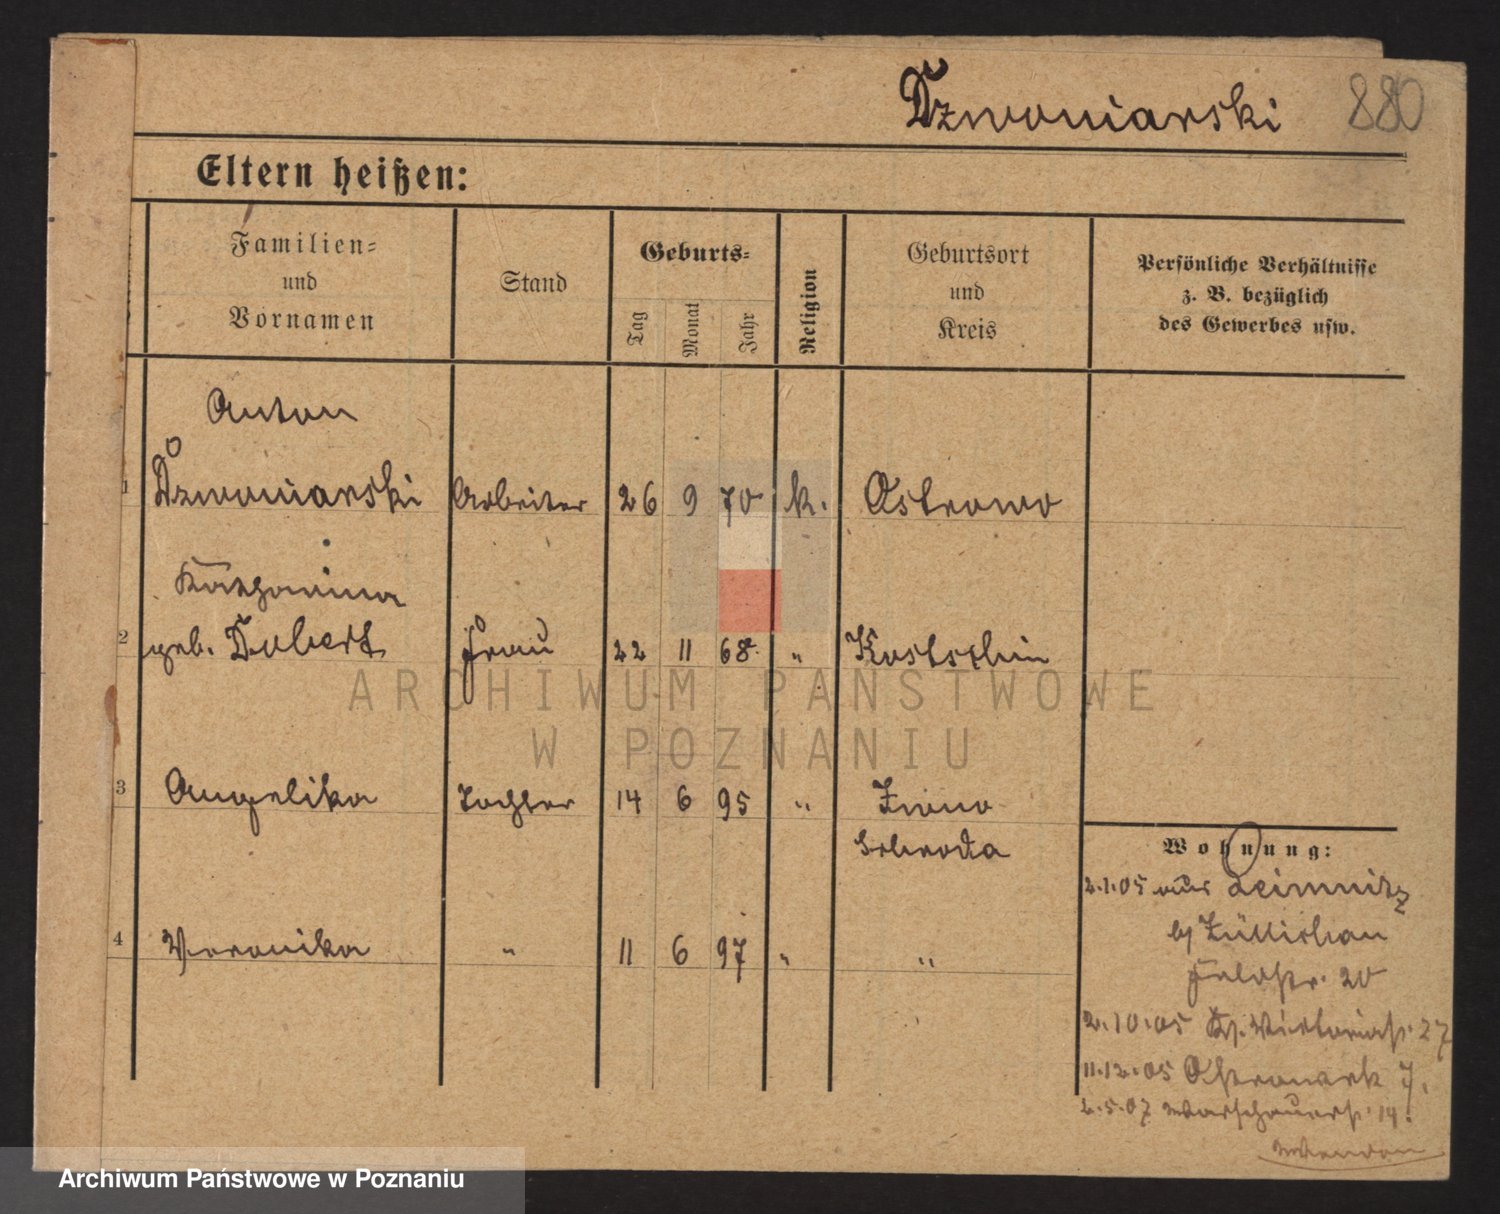 Dzwoniarski 880
Eltern heißen:
Familien- und Vornamen
Stand
Geburts-
Tag Monat Jahr
Religion
Geburtsort und Kreis
Persönliche Verhältnisse z. B. bezüglich des Gewerbes usw.
Anton
1 Dzwoniarski Arbeiter 26 9 70 k. Ostrowo
Katharina
2 geb. Dubert Frau 22 11 68 " Kostschin
ARCHIWUM PAŃSTWOWE
W POZNANIU
3 Angelika Tochter 14 6 95 "
Schroda
4 Veronika " 11 6 97 " "
Wohnung:
2.1.05 aus Leimnitz
b/ Züllichau
Feldstr. 20
2.10.05 Victoriastr. 27
11.12.05 7.
2.5.07 Warschauerstr. 14.
Archiwum Państwowe w Poznaniu